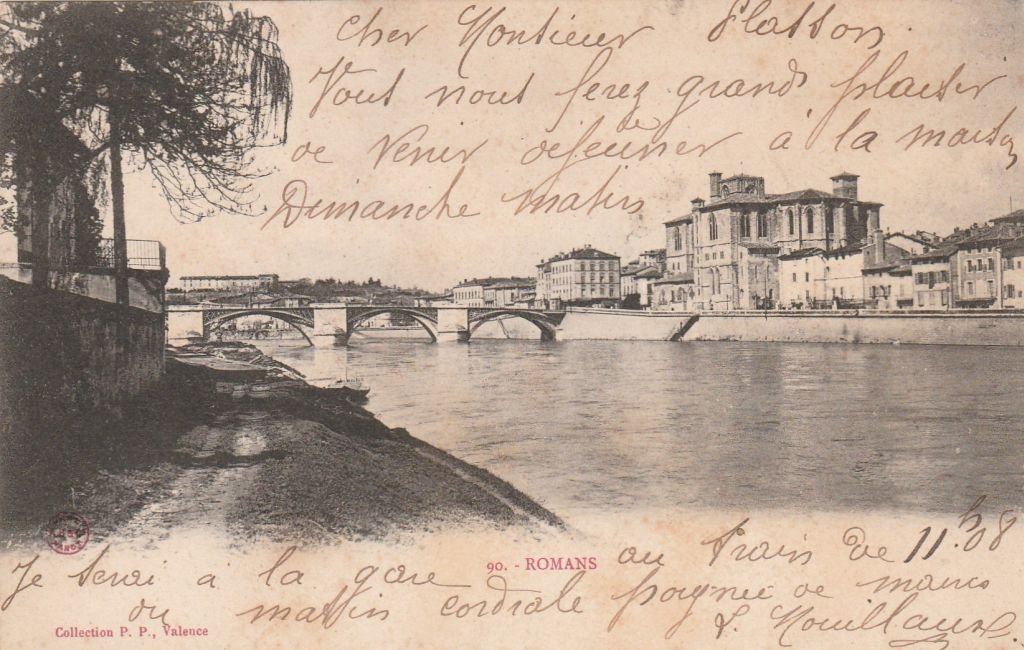 Cher Monsieur Flasson.
Vous nous ferez grand plaisir
de venir dejeuner à la maison
Dimanche matin
Je serai à la gare au train de 11h08
90. - ROMANS
du matin cordiale poignée de mains
Collection P. P., Valence